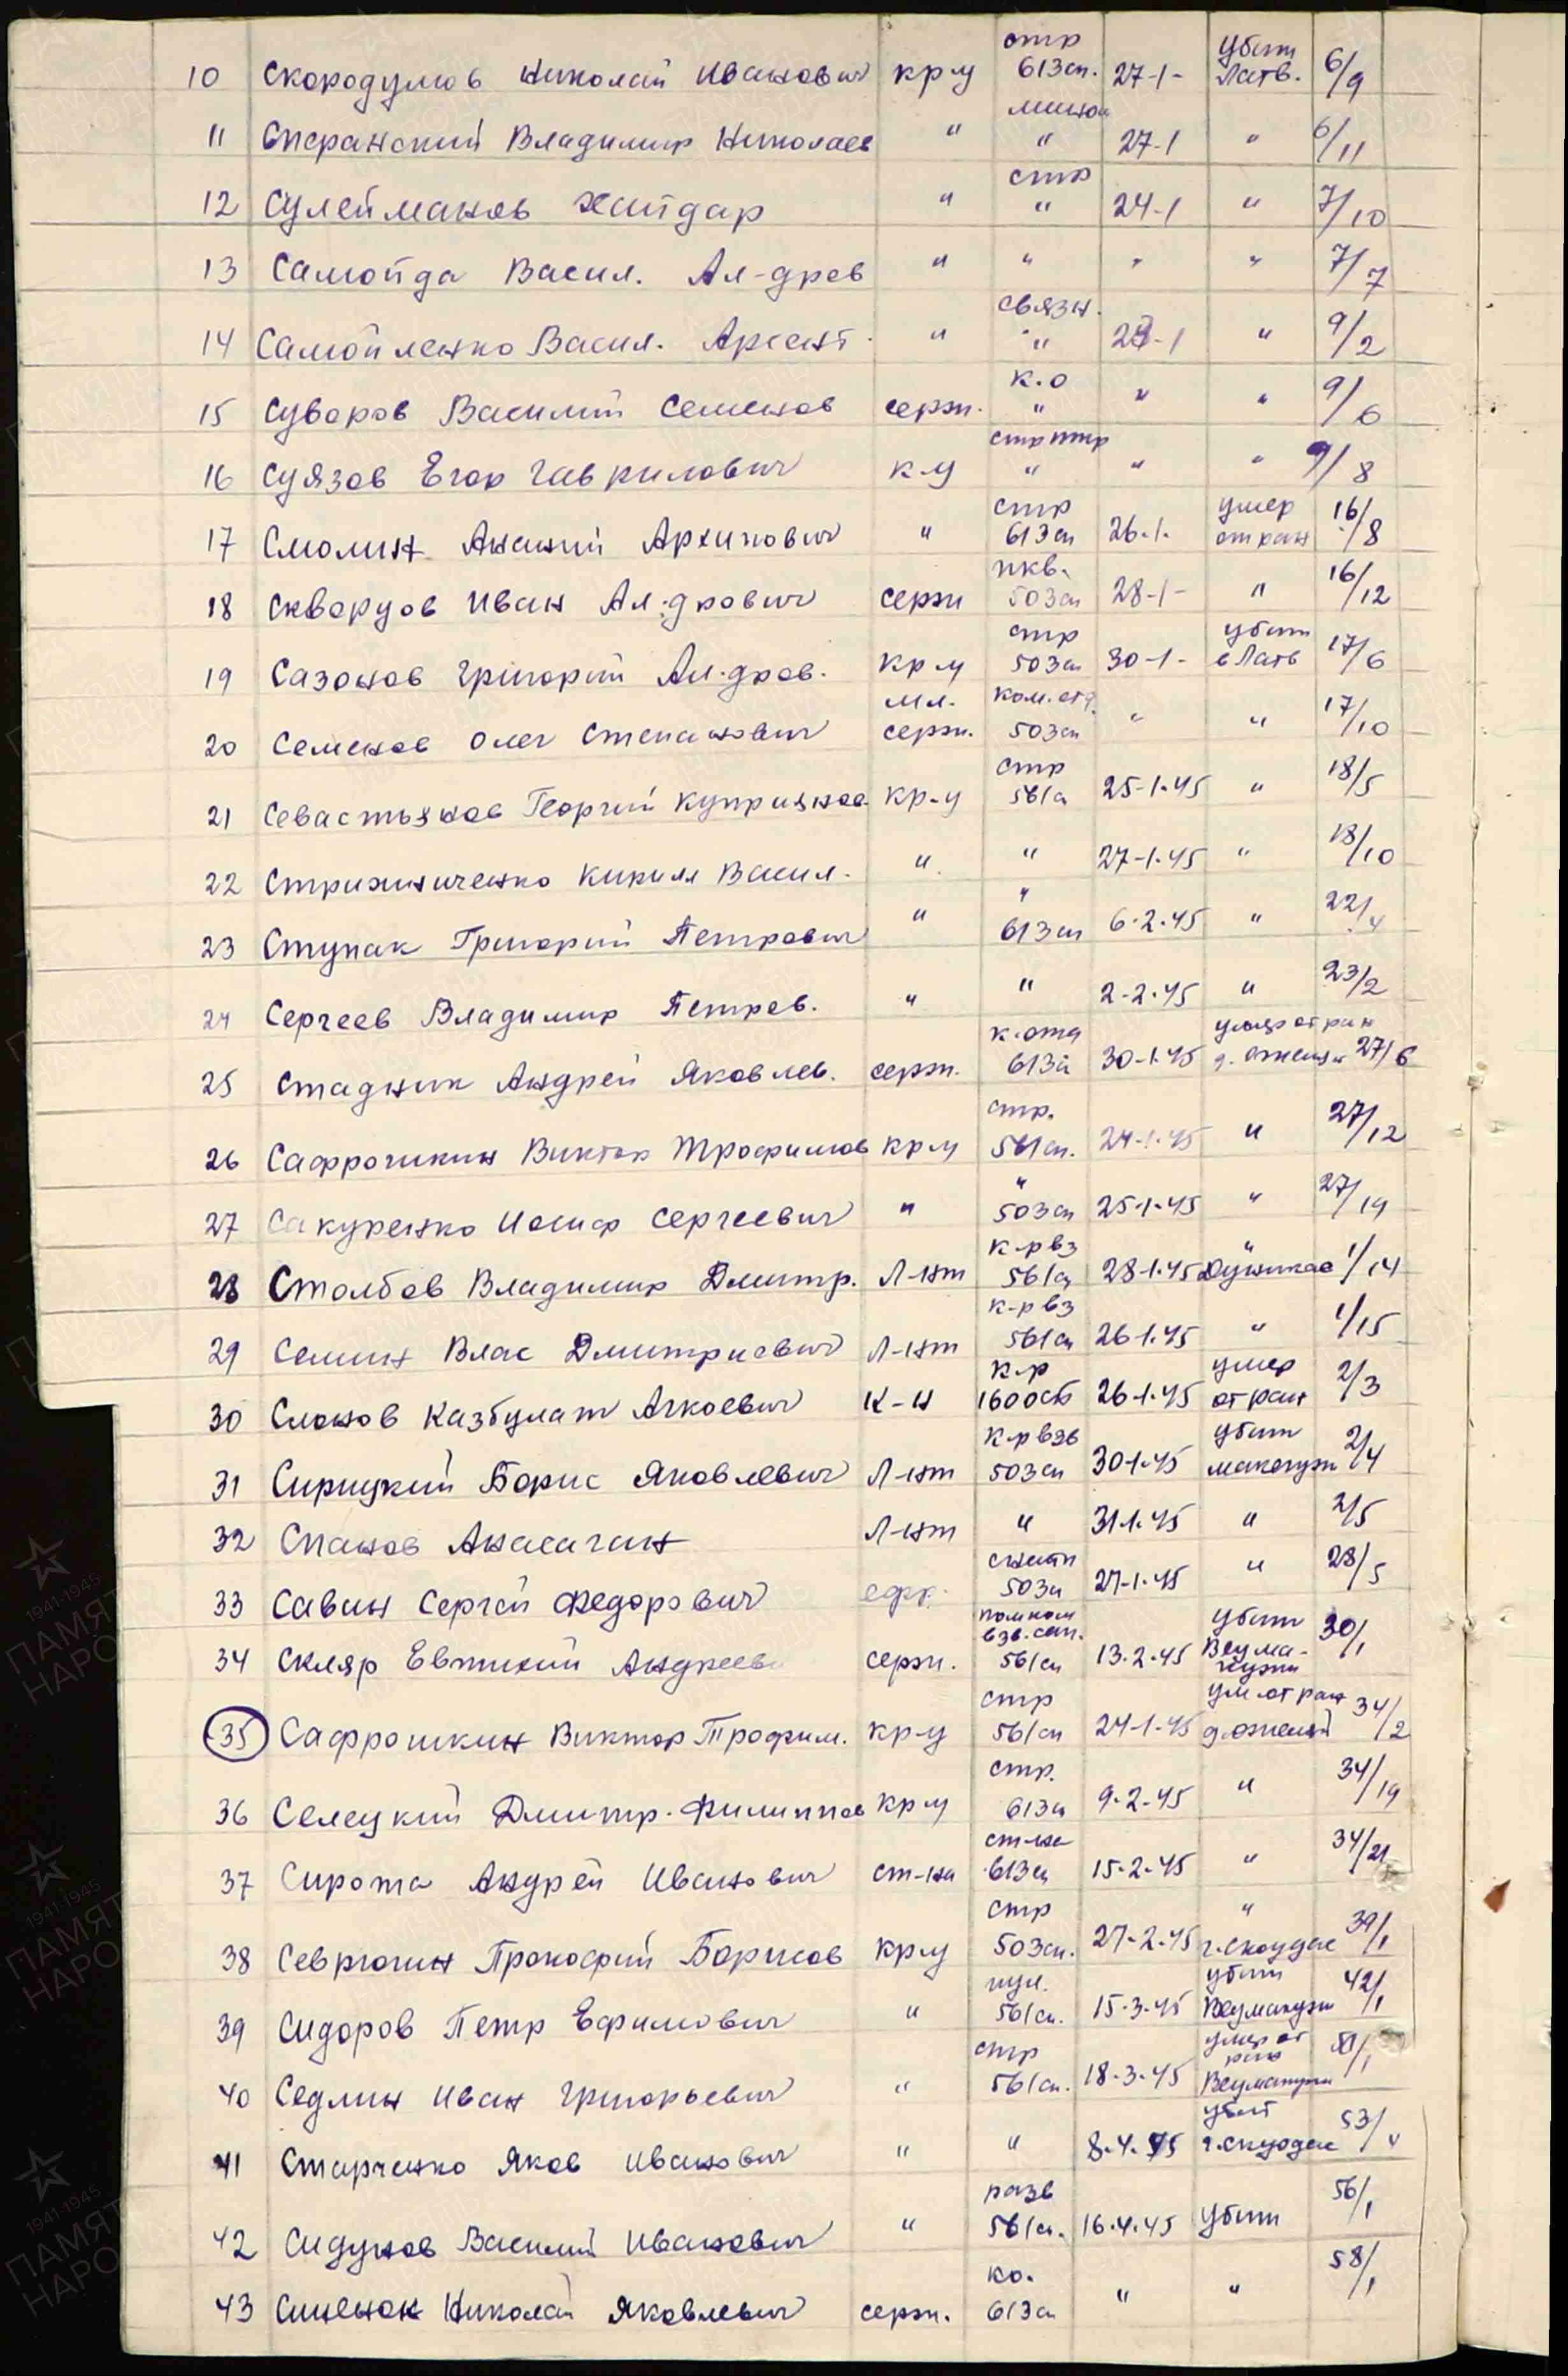 10 Скородумов Николай Иванович кр-ц стр 613сп. 27-1- убит Латв. 6/9
11 Сперанский Владимир Николаев " мином " 27-1 " 6/11
12 Сулейманов Хайдар " стр " 24-1 " 7/10
13 Самойда Васил. Ал-дров " " " " 7/7
14 Самойленко Васил. Арсент. " связн. " 1 " 9/2
15 Суворов Василий Семенов сержн. к.о " " " 9/6
16 Суязов Егор Гаврилович к-ц стр птр " " " 9/8
17 Смолин Ананий Архипович " стр 613сп 26-1- умер от ран 16/8
18 Скворцов Иван Ал-дрович сержн пкв. 503сп 28-1- " 16/12
19 Сазонов Григорий Ал-дров. кр-ц стр 503сп 30-1- убит в Латв 17/6
20 Семенов Олег Степанович мл. сержн. ком. отд. 503сп " " 17/10
21 Севастьянов Георгий Куприянов. кр-ц стр 561сп 25-1-45 " 18/5
22 Стрижниченко Кирилл Васил. " " 27-1-45 " 18/10
23 Ступак Григорий Петрович " " 613сп 6-2-45 " 22/4
24 Сергеев Владимир Петров. " " 2-2-45 " 23/2
25 Стадник Андрей Яковлев. сержн. к.отд 613сп 30-1-45 умер от ран д. 27/6
26 Сафрошкин Виктор Трофимов кр-ц стр. 561сп. 24-1-45 " 27/12
27 Сакуренко Иосиф Сергеевич " " 503сп 25-1-45 " 27/19
28 Столбов Владимир Дмитр. Л-нт к-р вз 561сп 28-1-45 " 1/14
29 Семин Влас Дмитриевич Л-нт к-р вз 561сп 26-1-45 " 1/15
30 Слонов Казбулат К-н к-р 160 26-1-45 умер от ран 2/3
31 Сирицкий Борис Яковлевич Л-нт к-р взв 503сп 30-1-45 убит 2/4
32 Спанов Л-нт " 31-1-45 " 2/5
33 Савин Сергей Федорович ефр. снайп 503сп 27-1-45 " 28/5
34 Скляр Евтихий Андреев сержн. помком взв. сап. 561сп 13-2-45 убит Вецма- 30/1
35 Сафрошкин Виктор Трофим. кр-ц стр 561сп 24-1-45 ум. от ран 34/2
36 Селецкий Дмитр. Филиппов кр-ц стр. 613сп 9-2-45 " 34/19
37 Сирота Андрей Иванович ст-на ст-на 613сп 15-2-45 " 34/21
38 Севрюгин Прокофий Борисов кр-ц стр 503сп. 27-2-45 " г. Скуодас 39/1
39 Сидоров Петр Ефимович " пул. 561сп. 15-3-45 убит 42/1
40 Седлин Иван Григорьевич " стр 561сп. 18-3-45 умер от ран
41 Старченко Яков Иванович " " 8-4-45 убит г. Скуодас 53/4
42 Сидунов Василий Иванович " разв 561сп. 16-4-45 убит 56/1
43 Синенок Николай Яковлевич сержн. ко. 613сп " " 58/1
1941-1945
ПАМЯТ
НАРО
1941-1945
ПАМЯТ
НАРО
1941-1945
ПАМЯТ
НАРО